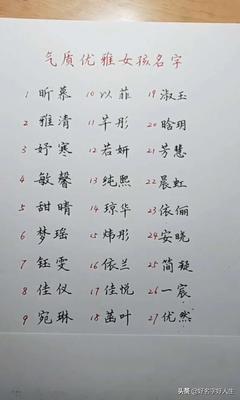 气质优雅女孩名字
1 昕慕 10 以菲 19 淑玉
2 雅清 11 芊彤 20 晗玥
3 妤寒 12 若妍 21 芳慧
4 敏馨 13 纯熙 22 晨虹
5 甜晴 14 琼华 23 依俪
6 梦瑶 15 炜彤 24 安晓
7 钰雯 16 依兰 25 简凝
8 佳仪 17 佳悦 26 一宸
9 宛琳 18 菡叶 27 优然
头条 @好名字好人生